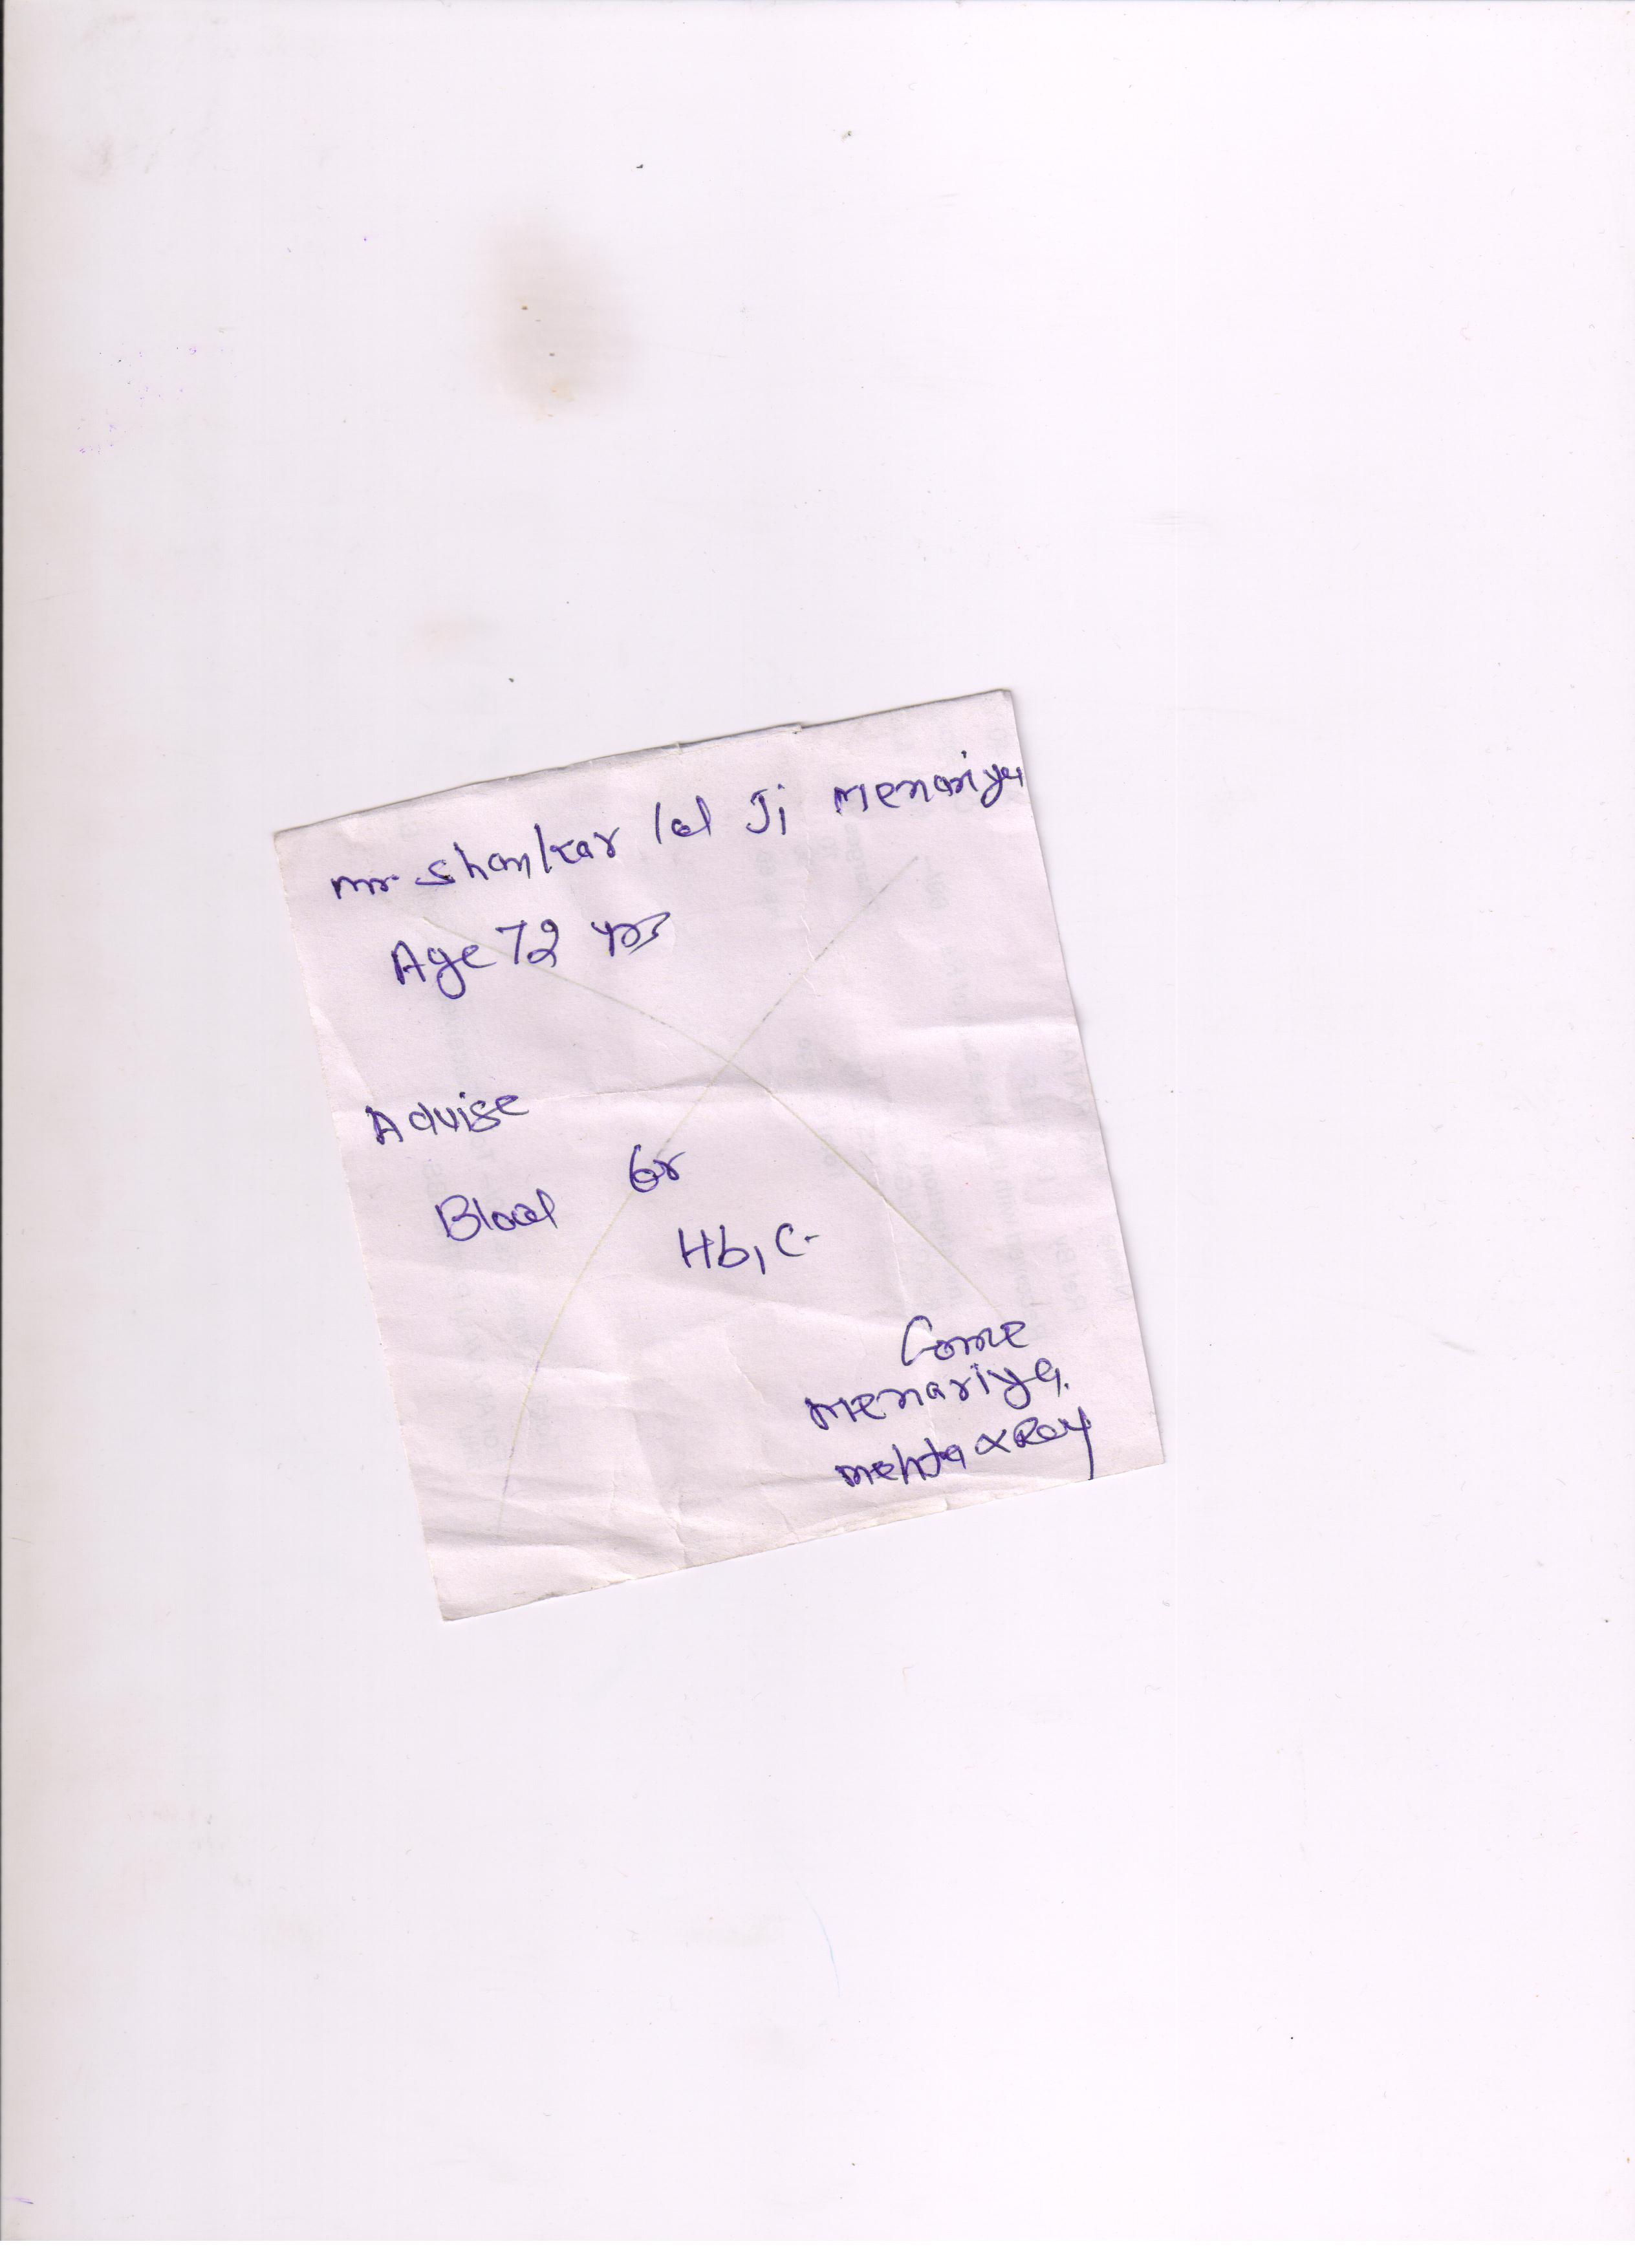 mr. Shankar lal Ji Menariya
Age 72 yrs
Advise
Blood for
Hb1C.
Come
Menariya.
mehta xRay